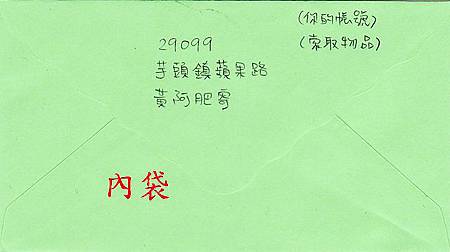 (你的帳號)
29099 (索取物品)
芋頭鎮蘋果路
黃阿肥寄
內袋